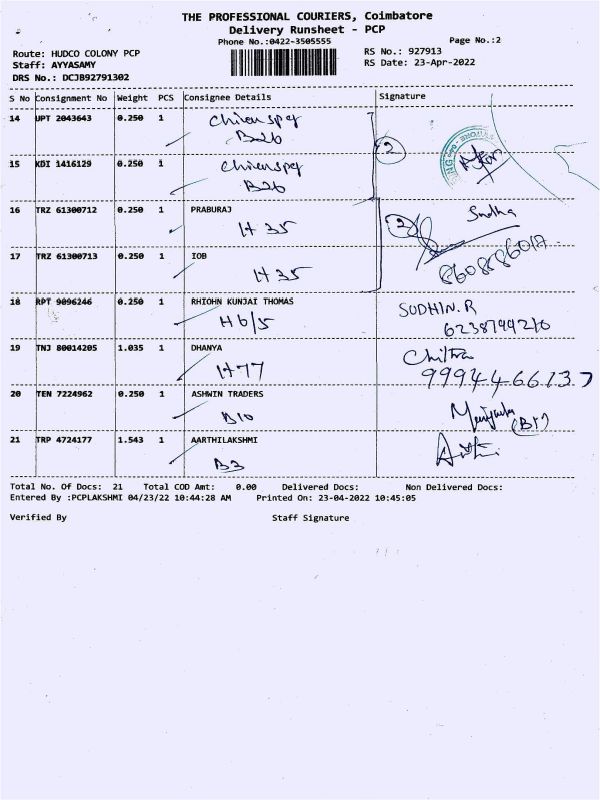 THE PROFESSIONAL COURIERS, Coimbatore
Delivery Runsheet - PCP
Phone No.:0422-3505555
Page No.:2
Route: HUDCO COLONY PCP
RS No.: 927913
Staff: AYYASAMY
RS Date: 23-Apr-2022
DRS No.: DCJB92791302
S No Consignment No Weight PCS Consignee Details Signature
14 UPT 2043643 0.250 1
B26
2
15 KDI 1416129 0.250 1
B26
16 TRZ 61300712 0.250 1 PRABURAJ
H 35
2 Sudha
17 TRZ 61300713 0.250 1 IOB
H 35
18 RPT 9096246 0.250 1 RHIOHN KUNJAI THOMAS
H 6/5
SUDHIN.R
19 TNJ 80014205 1.035 1 DHANYA
H 77
Chitra
9994466137
20 TEN 7224962 0.250 1 ASHWIN TRADERS
B10
21 TRP 4724177 1.543 1 AARTHILAKSHMI
B3
Total No. Of Docs: 21 Total COD Amt: 0.00 Delivered Docs: Non Delivered Docs:
Entered By :PCPLAKSHMI 04/23/22 10:44:28 AM Printed On: 23-04-2022 10:45:05
Verified By Staff Signature